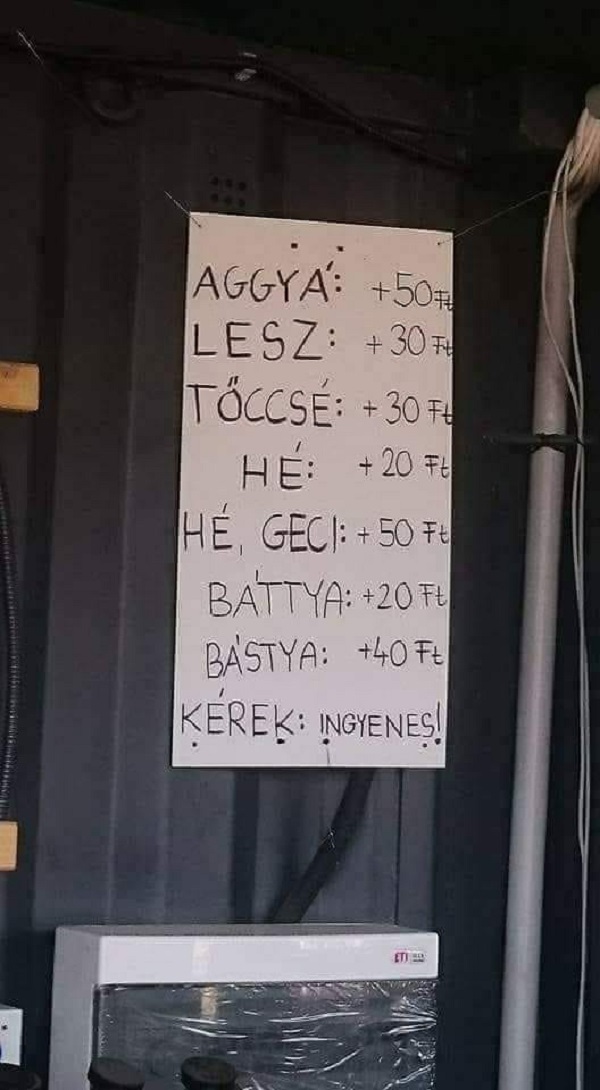 AGGYÁ: +50 Ft
LESZ: +30 Ft
TŐCCSÉ: +30 Ft
HÉ: +20 Ft
HÉ, GECI: +50 Ft
BÁTTYA: +20 Ft
BÁSTYA: +40 Ft
KÉREK: INGYENES!
ETI